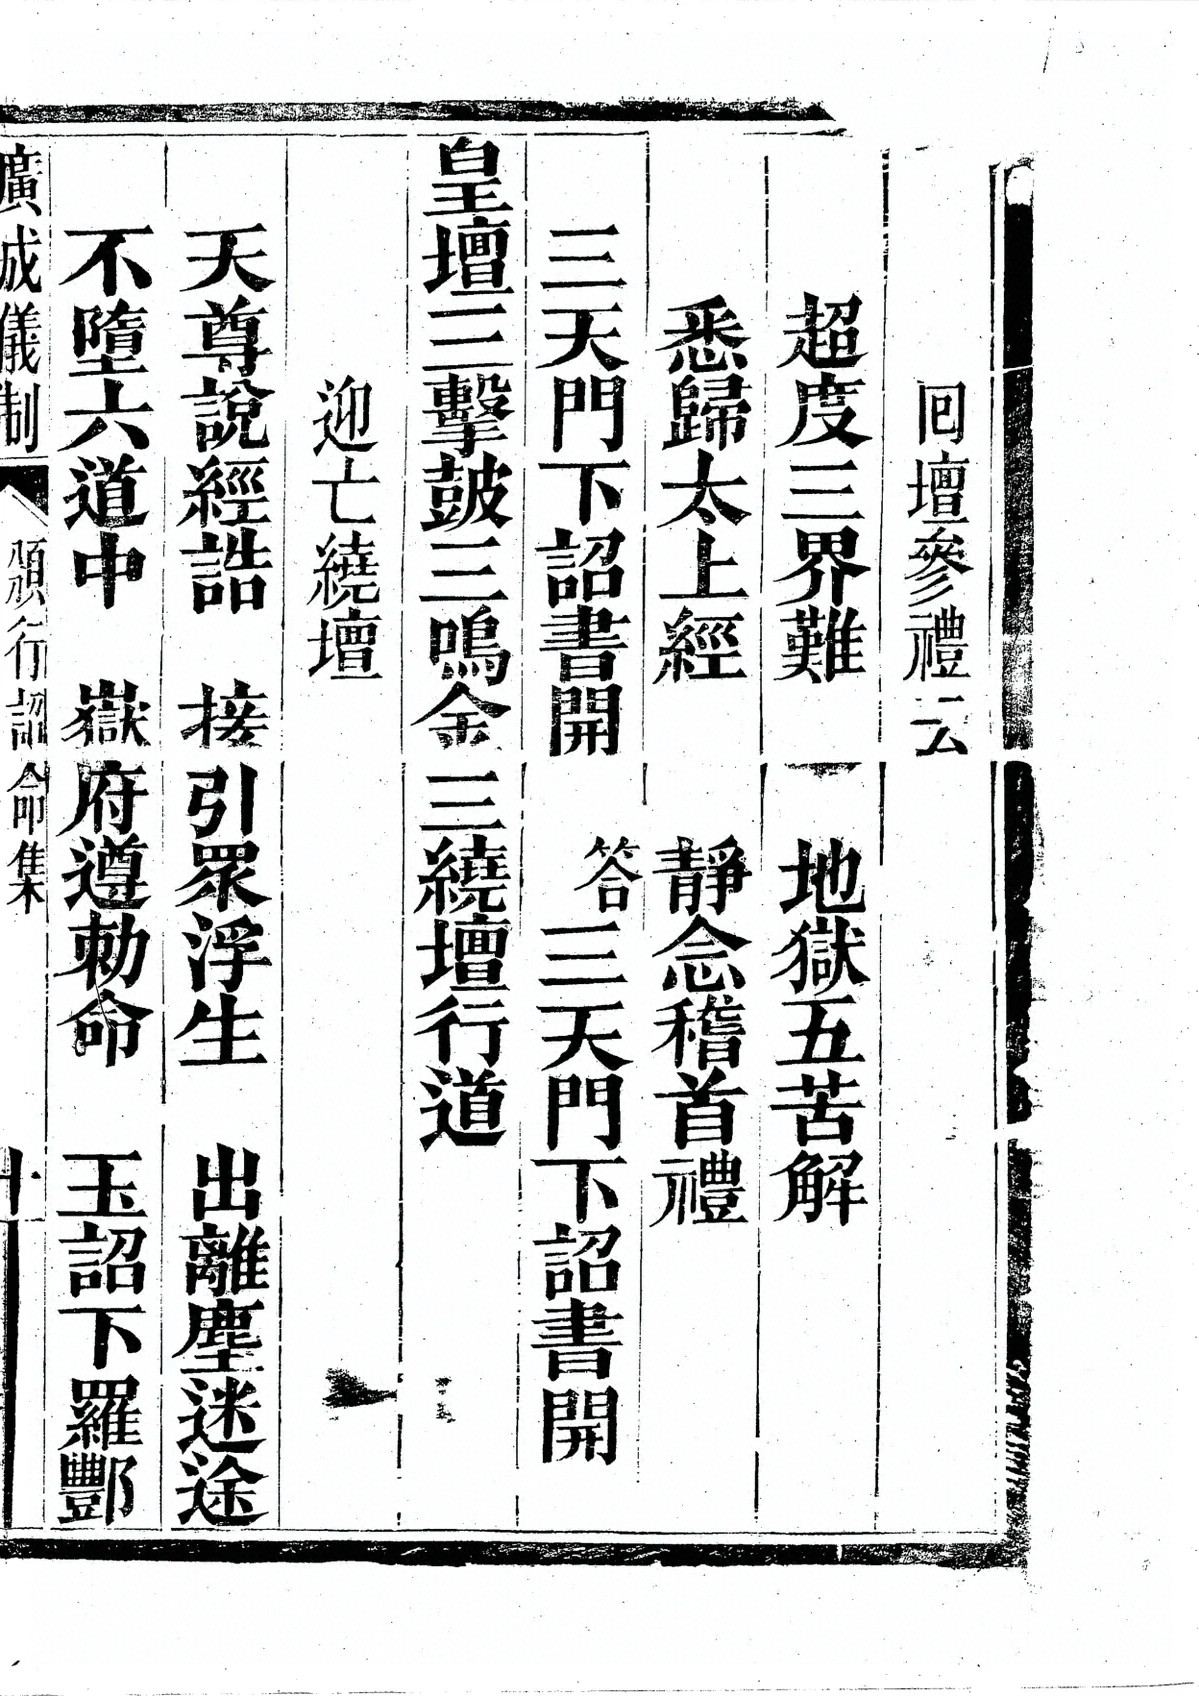 回壇參禮云
超度三界難　地獄五苦解
悉歸太上經　靜念稽首禮
三天門下詔書開　答三天門下詔書開
皇壇三擊鼓三鳴金三繞壇行道
迎亡繞壇
天尊說經誥　接引眾浮生　出離塵迷途
不墮六道中　嶽府遵勅命　玉詔下羅酆
廣成儀制　頒行詔命集　十